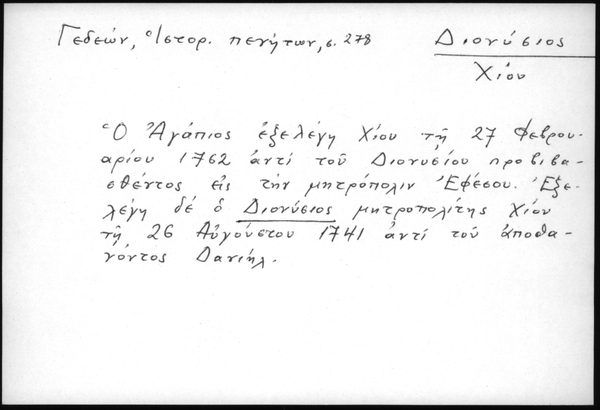 Γεδεών, Ἱστορ. πενήτων, σ. 278
Διονύσιος
Χίου
Ὁ Ἀγάπιος ἐξελέγη Χίου τῇ 27 Φεβρου-
αρίου 1762 ἀντί τοῦ Διονυσίου προβιβα-
σθέντος εἰς τήν μητρόπολιν Ἐφέσου. Ἐξε-
λέγη δέ ὁ Διονύσιος μητροπολίτης Χίου
τῇ 26 Αὐγούστου 1741 ἀντί τοῦ ἀποθα-
νόντος Δανιήλ.